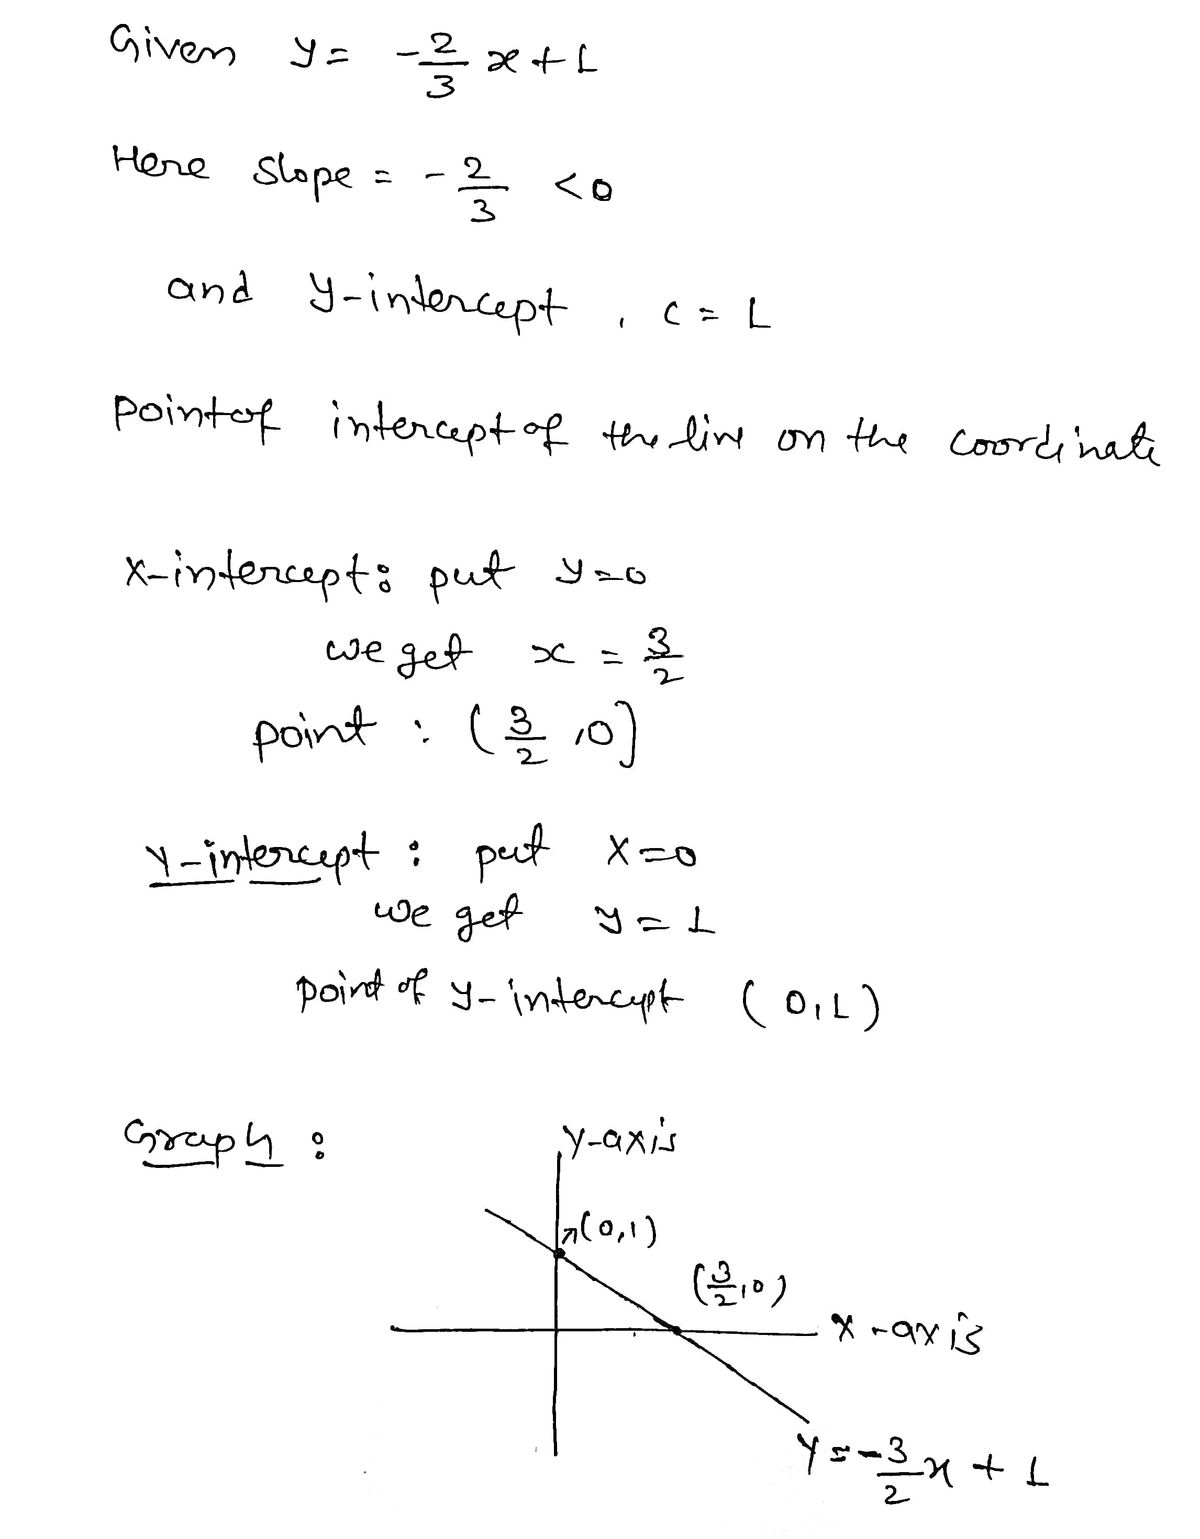 Given y = -2/3 x + 1
Here slope = -2/3 < 0
and y-intercept, c = 1
point of intercept of the line on the coordinate
x-intercept: put y=0
we get x = 3/2
point : (3/2, 0)
Y-intercept : put x=0
we get y = 1
point of y-intercept (0,1)
Graph :
y-axis
(0,1)
(3/2,0)
x-axis
y = -3/2 x + 1